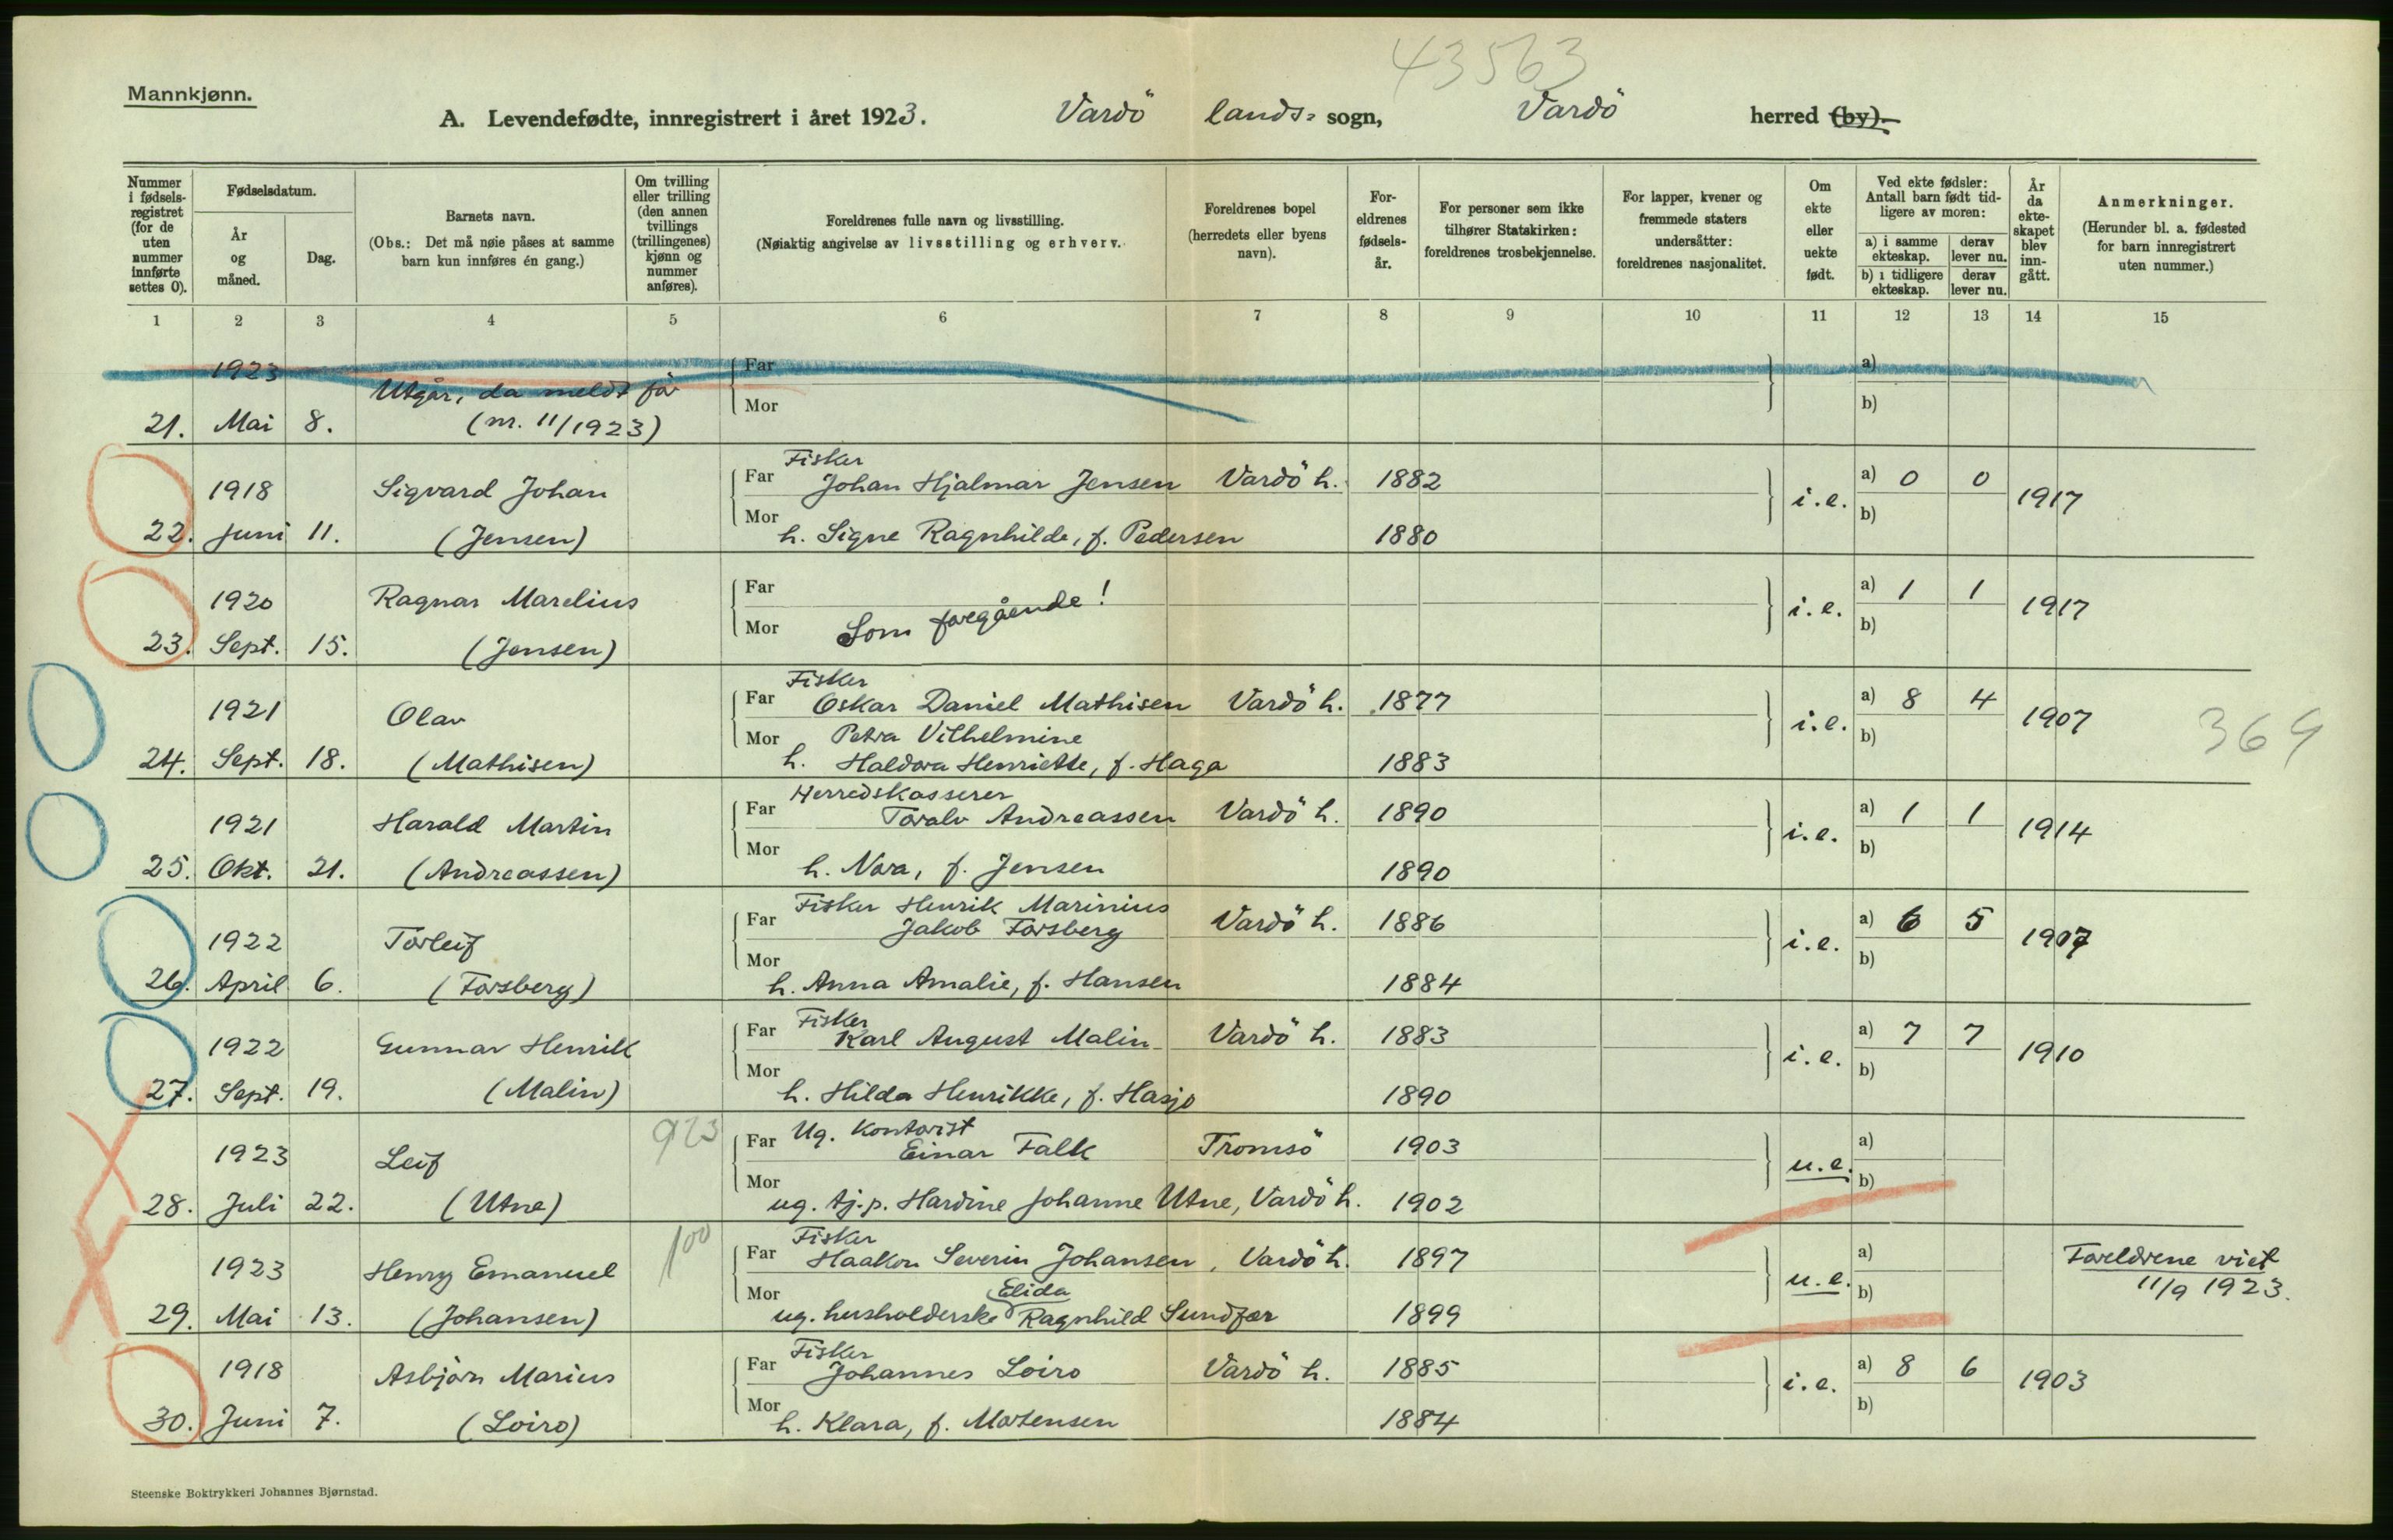 43563
Mannkjønn.
A. Levendefødte, innregistrert i året 1923. Vardö lands- sogn, Vardö herred (by).
Nummer i fødselsregistret (for de uten nummer innførte settes 0).
Fødselsdatum.
År og måned.
Dag.
Barnets navn.
(Obs.: Det må nøie påses at samme barn kun innføres én gang.)
Om tvilling eller trilling (den annen tvillings (trillingenes) kjønn og nummer anføres).
Foreldrenes fulle navn og livsstilling.
(Nøiaktig angivelse av livsstilling og erhverv.
Foreldrenes bopel (herredets eller byens navn).
Foreldrenes fødselsår.
For personer som ikke tilhører Statskirken: foreldrenes trosbekjennelse.
For lapper, kvener og fremmede staters undersåtter: foreldrenes nasjonalitet.
Om ekte eller uekte født.
Ved ekte fødsler: Antall barn født tidligere av moren:
a) i samme ekteskap. derav lever nu.
b) i tidligere ekteskap. derav lever nu.
År da ekteskapet blev inngått.
Anmerkninger.
(Herunder bl. a. fødested for barn innregistrert uten nummer.)
1 2 3 4 5 6 7 8 9 10 11 12 13 14 15
1923 Utgår, da meldt för Far a)
21. Mai 8. (nr. 11/1923) Mor b)
Fisker
1918 Sigvard Johan Far Johan Hjalmar Jensen Vardö h. 1882 i.e. a) 0 0 1917
22. Juni 11. (Jensen) Mor h. Signe Ragnhilde, f. Pedersen 1880 b)
1920 Ragnar Marelius Far Som foregående! i.e. a) 1 1 1917
23. Sept. 15. (Jensen) Mor b)
Fisker
1921 Olav Far Oskar Daniel Mathisen Vardö h. 1877 i.e. a) 8 4 1907 369
Mor Petra Vilhelmine b)
24. Sept. 18. (Mathisen) h. Haldora Henriette, f. Haga 1883
Herredskasserer
1921 Harald Martin Far Toralv Andreassen Vardö h. 1890 i.e. a) 1 1 1914
25. Okt. 21. (Andreassen) Mor h. Nora, f. Jensen 1890 b)
Fisker Henrik Marinius
1922 Torleif Far Jakob Forsberg Vardö h. 1886 i.e. a) 6 5 1907
26. April 6. (Forsberg) Mor h. Anna Amalie, f. Hansen 1884 b)
Fisker
1922 Gunnar Henrik Far Karl August Malin Vardö h. 1883 i.e. a) 7 7 1910
27. Sept. 19. (Malin) Mor h. Hilda Henrikke, f. Hasjo 1890 b)
923 Ug. Kontorist
1923 Leif Far Einar Falk Tromsö 1903 u.e. a)
28. Juli 22. (Utne) Mor ug. tj.p. Hardine Johanne Utne, Vardö h. 1902 b)
100 Fisker
1923 Henry Emanuel Far Haakon Severin Johansen, Vardö h. 1897 u.e. a) Foreldrene viet
Elida 11/9 1923.
29. Mai 13. (Johansen) Mor ug. husholderske Ragnhild Sundfær 1899 b)
Fisker
1918 Asbjörn Marius Far Johannes Loiro Vardö h. 1885 i.e. a) 8 6 1903
30. Juni 7. (Loiro) Mor h. Klara, f. Mortensen 1884 b)
Steenske Boktrykkeri Johannes Bjørnstad.